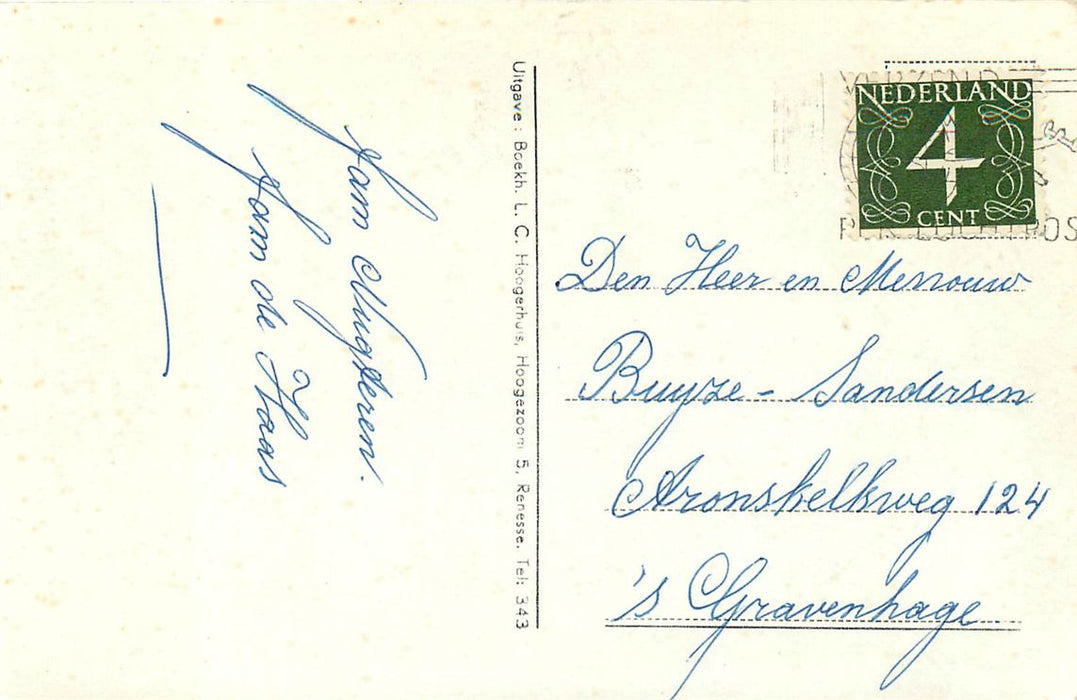 Fam Nugteren.
Fam de Haas
Uitgave: Boekh. L. C. Hoogerhuis, Hoogezoom 5, Renesse. Tel: 343
VERZEND
PER LUCHTPOS
NEDERLAND
4
CENT
Den Heer en Mevrouw
Buyze - Sandersen
Aronskelkweg 124
's Gravenhage